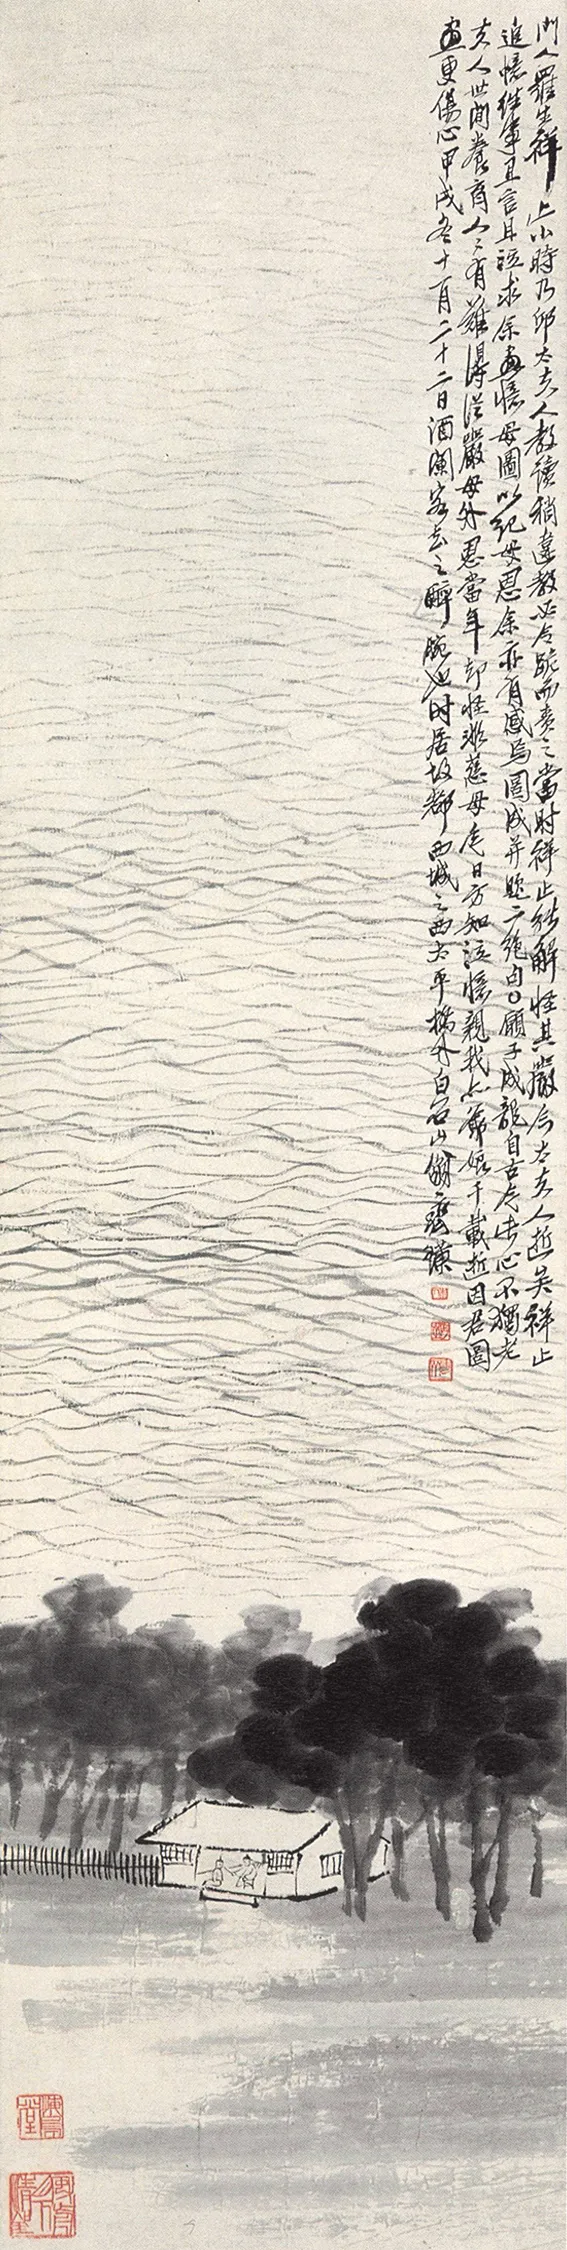 門人羅生祥止小時乃邱太夫人教讀稍違教必令跪而責之當時祥止能解怪其嚴今太夫人逝矣祥止
追憶往事且言且泣求余畫憶母圖以紀母恩余亦有感焉圖成并題二絕句〇願子成龍自古今此心不獨老
夫人世間養育人人有難得從嚴母外恩當年却怪非慈母今日方知泣憶親我亦爺娘千載逝因君圖
畫更傷心甲戌冬十一月二十二日酒闌客去之醉腕也時居故都西城之西太平橋外白石山翁齊璜